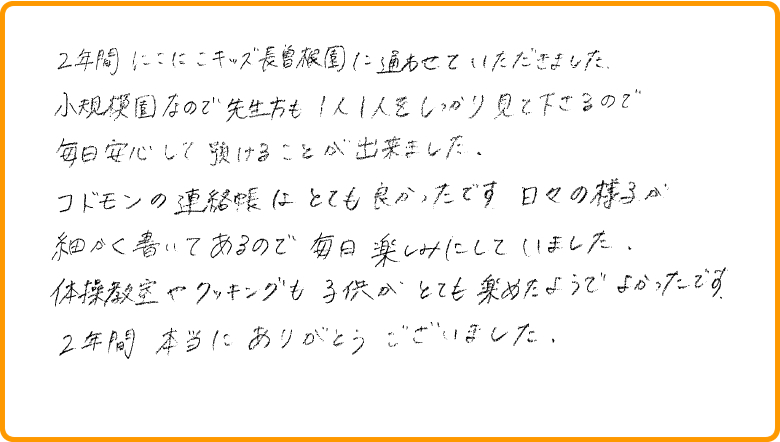 2年間 にこにこキッズ長曽根園に通わせていただきました.
小規模園なので先生方も1人1人をしっかり見て下さるので
毎日安心して預けることが出来ました.
コドモンの連絡帳はとても良かったです 日々の様子が
細かく書いてあるので毎日楽しみにしていました.
体操教室やクッキングも子供がとても楽めたようでよかったです.
2年間 本当にありがとうございました.